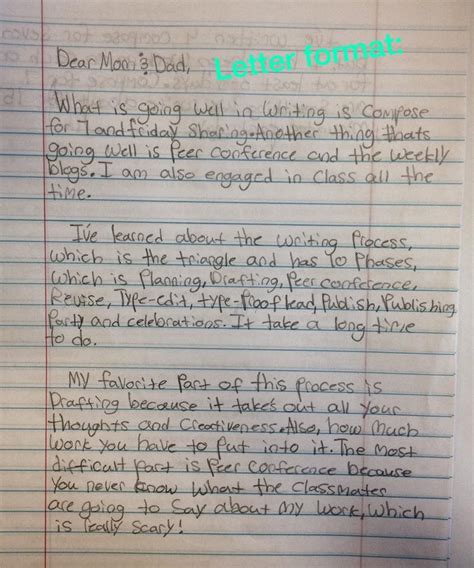 Letter format:
Dear Mom & Dad,
What is going well in writing is Compose
for 7 and friday Sharing. Another thing thats
going well is Peer Conference and the weekly
blogs. I am also engaged in Class all the
time.
I've learned about the writing Process,
which is the triangle and has 10 Phases,
which is Planning, Drafting, Peer conference,
Revise, Type-edit, type-Proof lead, Publish, Publishing
Party and celebrations. It take a long time
to do.
My favorite Part of this process is
Drafting because it takes out all your
thoughts and Creativeness. Also, how much
work you have to put into it. The most
difficult part is Peer Conference because
You never know what the classmates
are going to say about my work, which
is really scary!